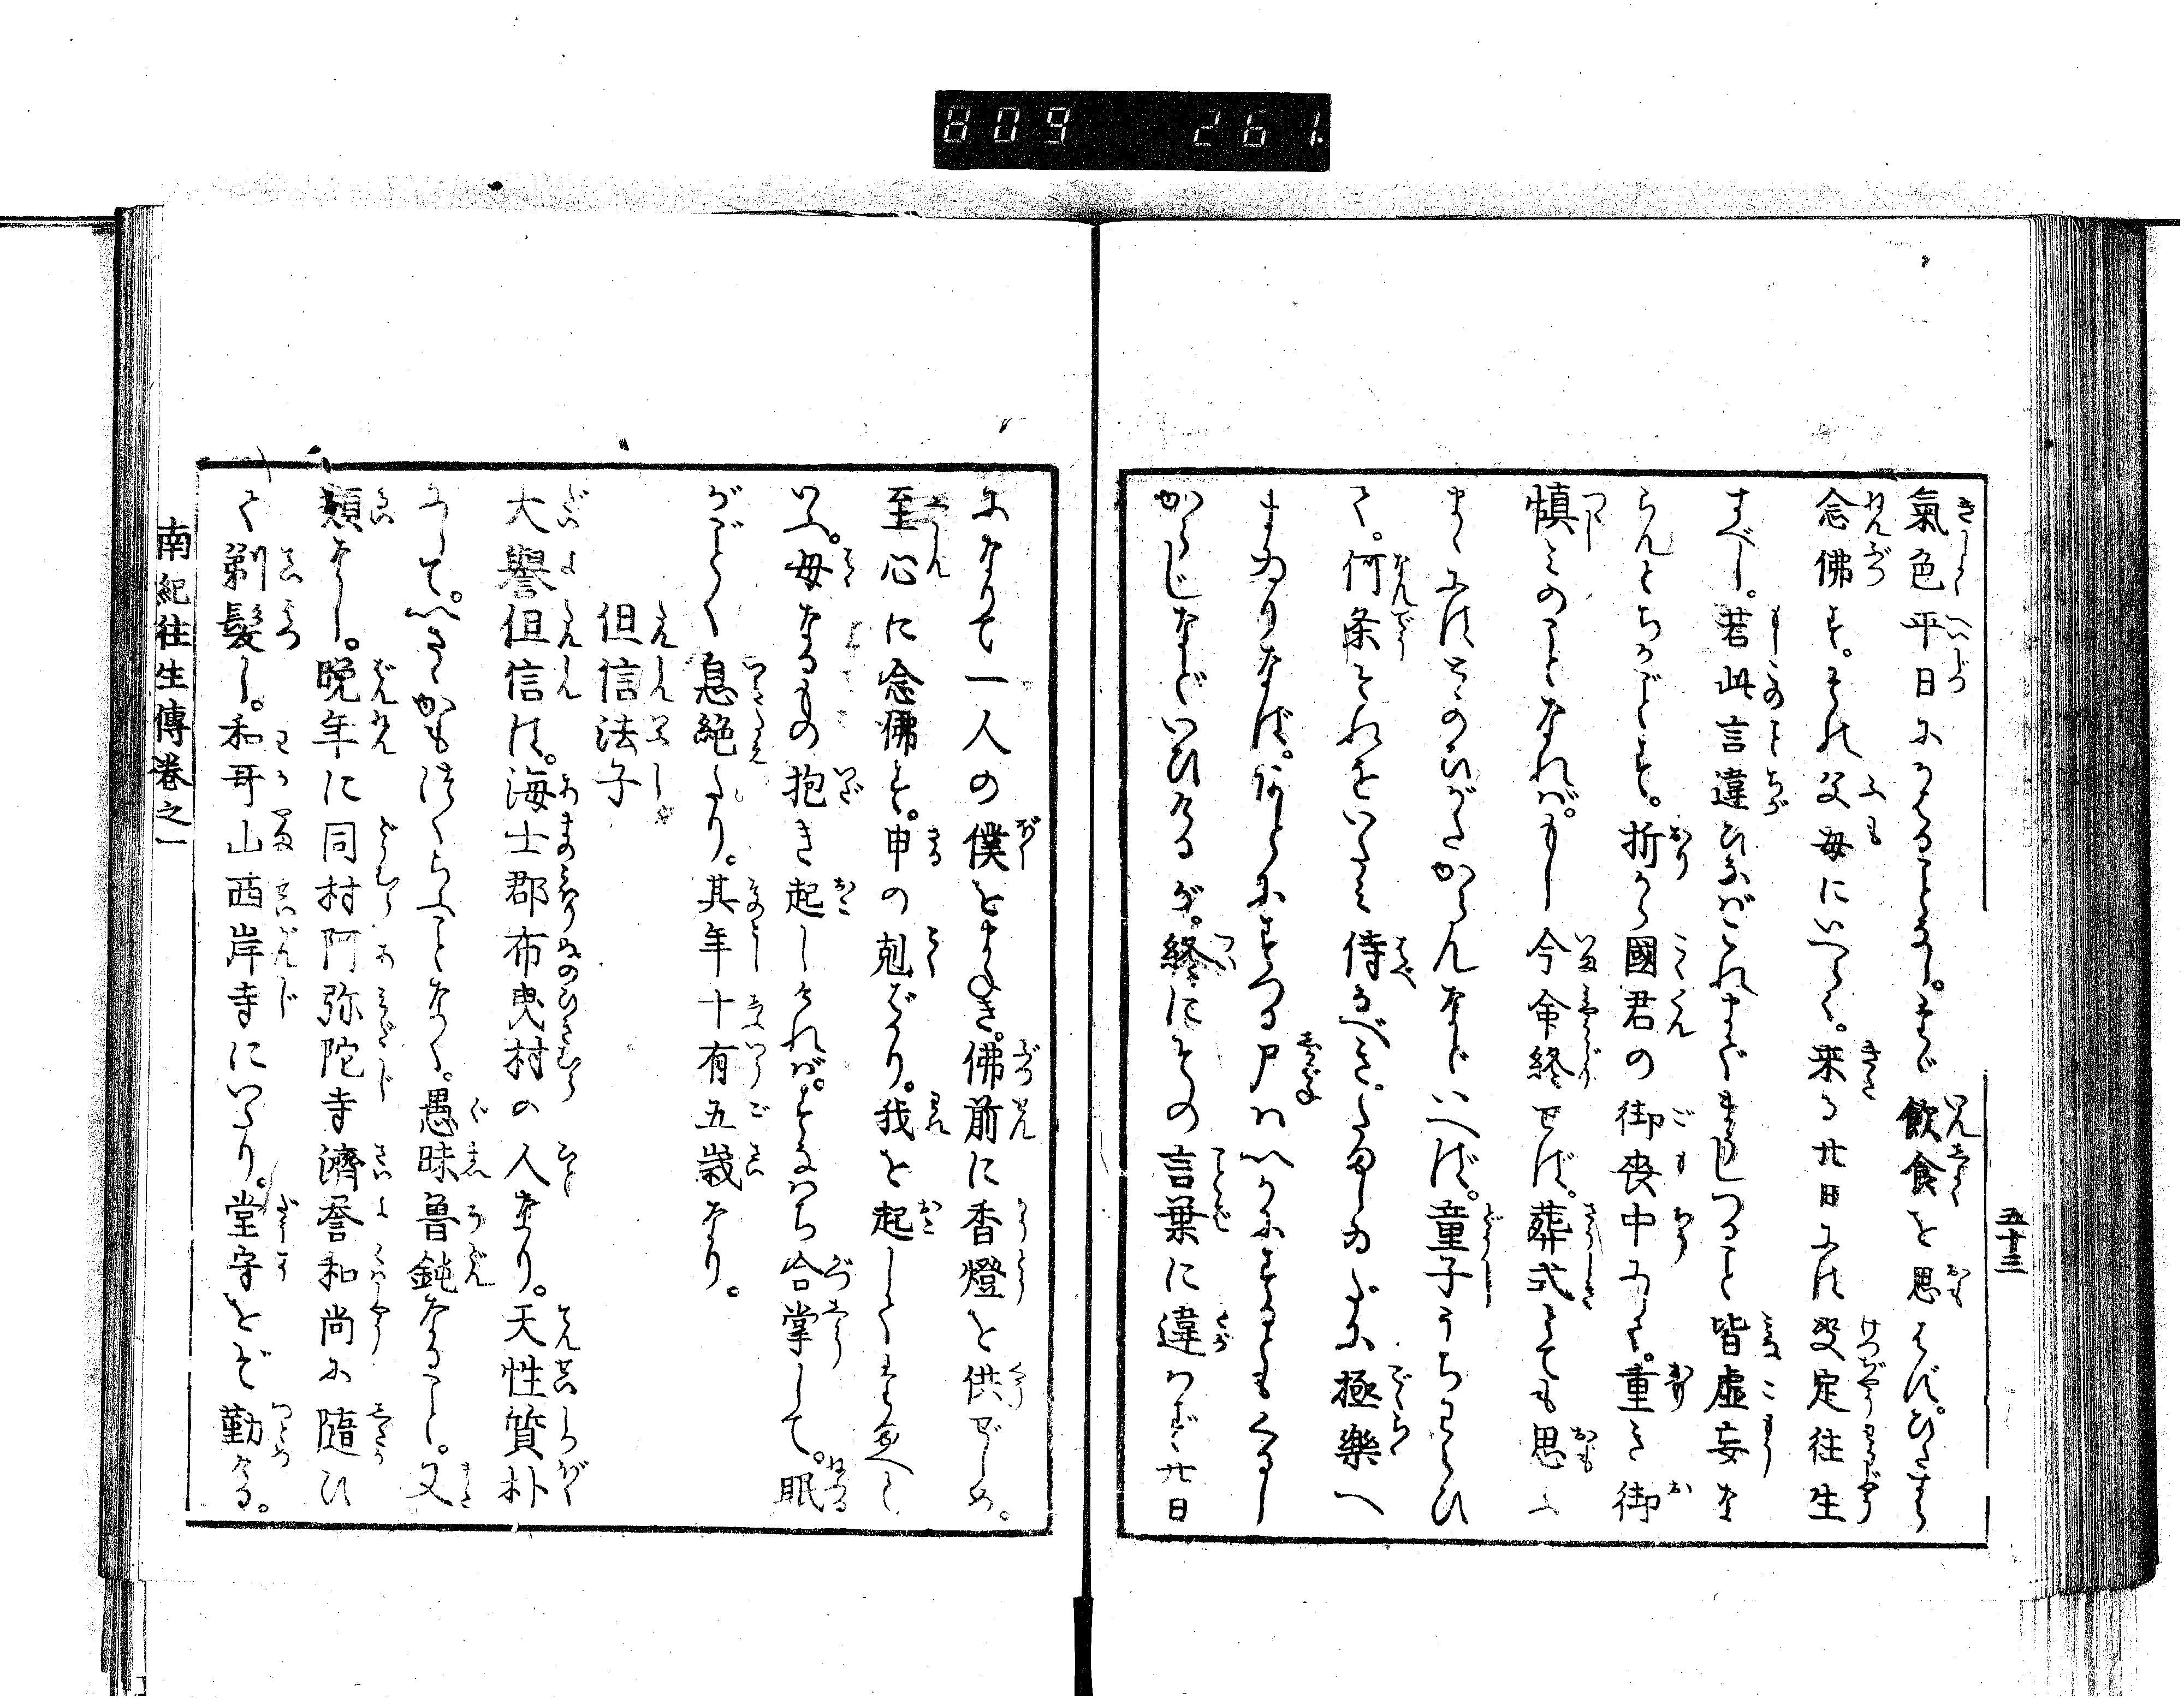 809 261.
五十三
氣色平日にかはることなし。たゞ飲食を思はず。ひたすら
念佛す。それ父母にいへらく。来る廿日には决定往生
すべし。若此言違ひなばこれまでまうしつること皆虚妄な
らんとちかごとす。折から國君の御喪中にて。重き御
慎みのことなれば。もし今命終せば。葬式とても思ふ
まゝにはとゝのひがたからんなどいへば。童子うちわらひ
て。何条それをいたみ侍るべき。たましゐだに極樂へ
まゐりなば。あとにすつる尸ハいかにするともくるし
からじなどいひけるが。終にその言葉に違わず廿日
になりて一人の僕をまねき。佛前に香燈を供ぜしめ。
至心に念佛す。申の剋ばかり。我を起してたまへと
いふ。母なるもの抱き起しければ。すなはち合掌して。眠
がごとく息絶たり。其年十有五歳なり。
但信法子
大譽但信は。海士郡布曳村の人なり。天性質朴
にして。いさゝかもはからふことなく。愚昧魯鈍なること。又
類なし。晩年に同村阿弥陀寺濟誉和尚に隨ひ
て剃髮し。和哥山西岸寺にいたり。堂守をぞ勤ける。
南紀往生傳卷之一